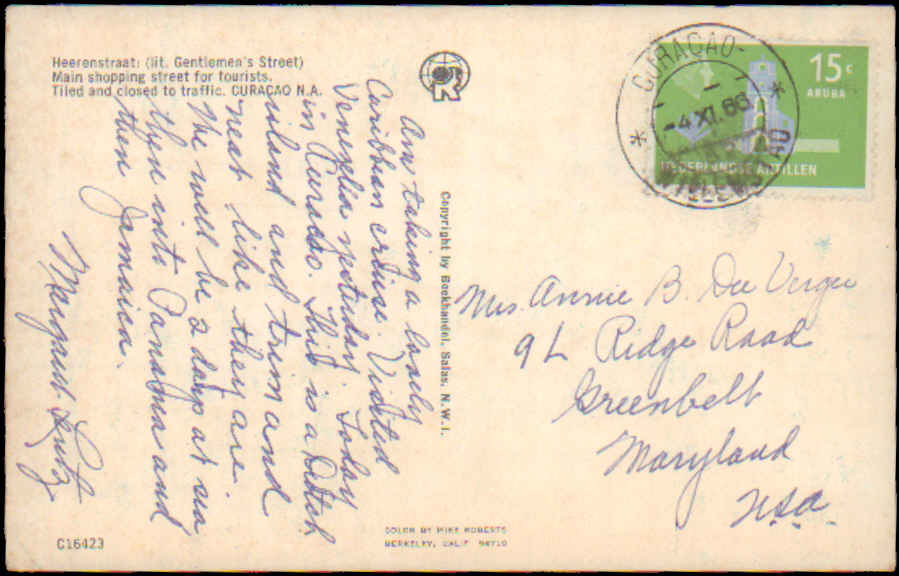 Heerenstraat: (lit. Gentlemen's Street)
Main shopping street for tourists.
Tiled and closed to traffic. CURAÇAO N.A.
Am taking a lovely
Caribbean cruise. Visited
Venezuela yesterday. Today
in Curacao. This is a Dutch
island and trim and
neat like they are.
We will be 2 days at sea
then into Panama and
then Jamaica.
Margaret Lutz
Copyright by Boekhandel. Salas. N.W.I.
CURAÇAO
-4 XI. 66
15c
ARUBA
NEDERLANDSE ANTILLEN
Mrs. Annie B. De Vergee
9L Ridge Road
Greenbelt
Maryland
USA.
C16423
COLOR BY MIKE ROBERTS
BERKELEY, CALIF 94710